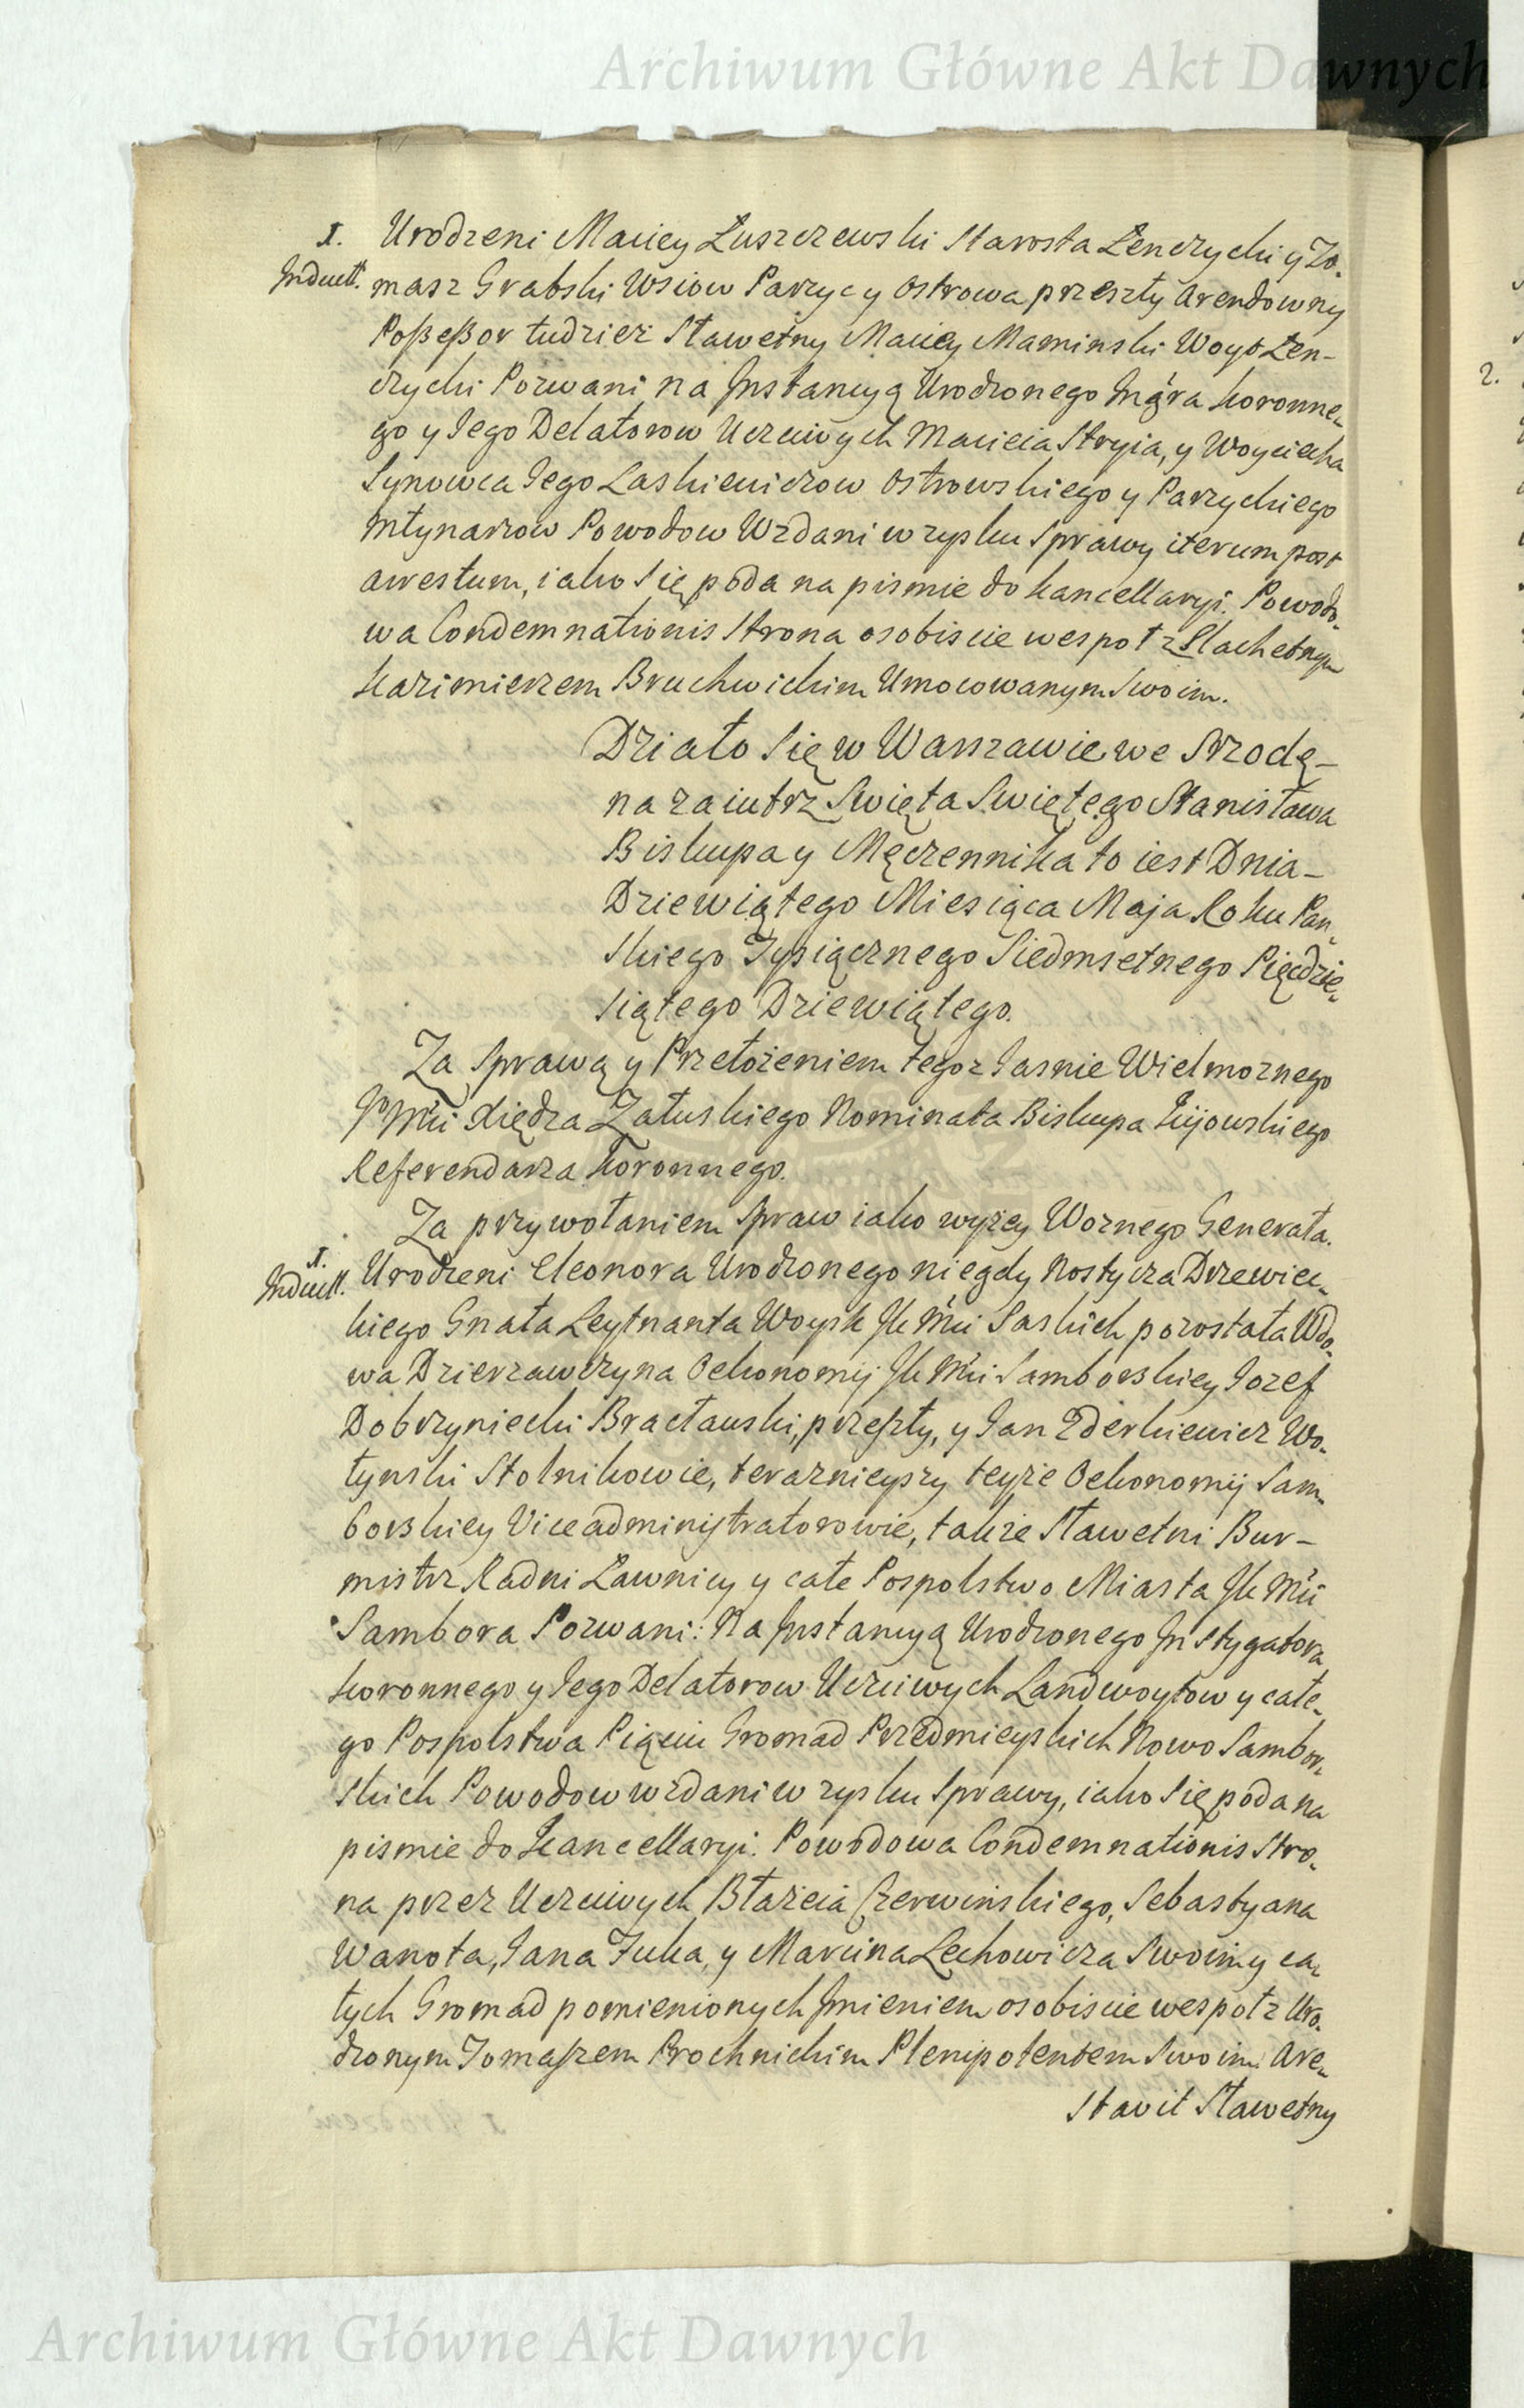 Archiwum Główne Akt Dawnych
1. Urodzeni Maciey Łuszczewski Starosta Łenczycki y To-
Induct. masz Grabski Wsiow Parzyc y Ostrowa przeszły Arendowny
Poßeßor tudziesz Sławetny Maciey Maminski Woyt Łen-
czycki Pozwani na Instancyą Urodzonego Ingra Koronne-
go y Jego Delatorow Uczciwych Macieia Stryia, y Woyciecha
Synowca Jego Laskiewiczow Ostrowskiego y Parzyckiego
Młynarzow Powodow Wzdani w zysku Sprawy iterum post
arrestum, iako się poda na pismie do Kancellaryi. Powodo-
wa Condemnationis Strona osobiscie wespoł z Slachetnym
Kazimierzem Bruchwickim Umocowanym Swoim.
Działo się w Warszawie we Srzodę-
na zaiutrz Swięta Swiętego Stanisława
Biskupa y Męczennika to iest Dnia-
Dziewiątego Miesiąca Maja Roku Pan-
skiego Tysiącznego Siedmsetnego Pięćdzie-
siątego Dziewiątego.
Za Sprawą y Przełożeniem tegoz Jasnie Wielmoznego
JP Mci Xiędza Załuskiego Nominata Biskupa Kijowskiego
Referendarza Koronnego.
Za przywołaniem Spraw iako wyzey Woznego Generała.
1.
Induct. Urodzeni Eleonora Urodzonego niegdy Nostycza Drzewiec-
kiego Gnała Leytnanta Woysk JK Mci Saskich pozostała Wdo-
wa Dzierzawczyna Oekonomij JK Mci Samborskiey Jozef
Dobrzyniecki Bracławski, przeszły, y Jan Ederkiewicz Wo-
łynski Stolnikowie, teraznieyszy teyże Oekonomij Sam-
borskiey Viceadministratorowie, takze Sławetni Bur-
mistrz Radni Ławnicy y całe Pospolstwo Miasta JK Mci
Sambora Pozwani: Na Instancyą Urodzonego Instygatora
Koronnego y Jego Delatorow Uczciwych Landwoytow y całe-
go Pospolstwa Piąciu Gromad Przedmieyskich Nowo Sambor-
skich Powodow wzdani w zysku Sprawy, iako się poda na
pismie do Kancellaryi. Powodowa Condemnationis Stro-
na przez Uczciwych Błażeia Czerwińskiego, Sebastyana
Wanota, Jana Żuka, y Marcina Lechowicza Swoim y ca-
łych Gromad pomienionych Imieniem osobiscie wespoł z Uro-
dzonym Tomaszem Prochnickim Plenipotentem Swoim. Are-
Stavit Sławetny
Archiwum Główne Akt Dawnych